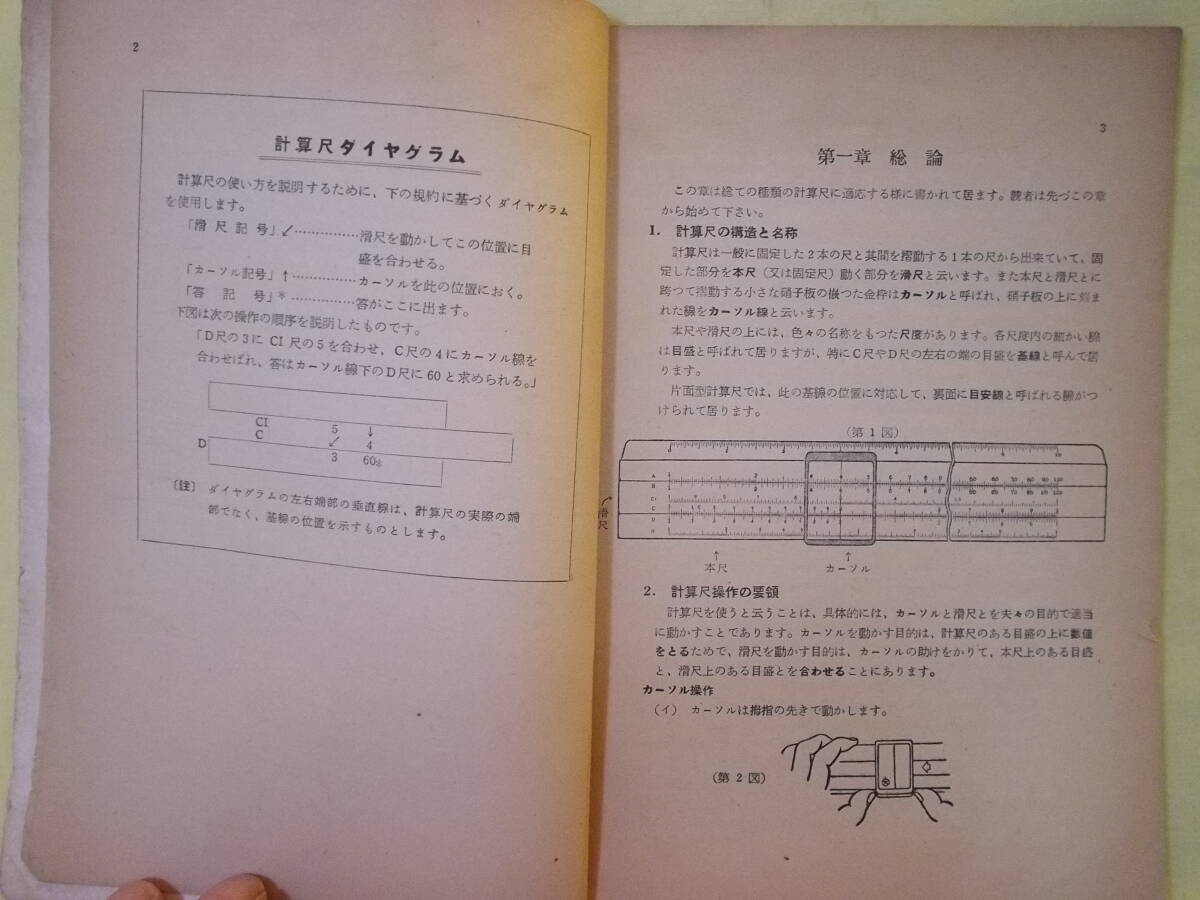 2
計算尺ダイヤグラム
計算尺の使い方を説明するために、下の規約に基づくダイヤグラム
を使用します。
「滑尺記号」↙……………滑尺を動かしてこの位置に目
盛を合わせる。
「カーソル記号」↑……………カーソルを此の位置におく。
「答記号」※……………答がここに出ます。
下図は次の操作の順序を説明したものです。
「D尺の3にCI尺の5を合わせ、C尺の4にカーソル線を
合わせれば、答はカーソル線下のD尺に60と求められる。」
CI 5 ↓
C ↙ 4
D 3 60※
〔註〕 ダイヤグラムの左右端部の垂直線は、計算尺の実際の端
部でなく、基線の位置を示すものとします。
3
第一章 総論
この章は総ての種類の計算尺に適応する様に書かれて居ます。読者は先づこの章
から始めて下さい。
1. 計算尺の構造と名称
計算尺は一般に固定した2本の尺と其間を摺動する1本の尺から出来ていて、固
定した部分を本尺（又は固定尺）動く部分を滑尺と云います。また本尺と滑尺とに
跨つて摺動する小さな硝子板の嵌つた金枠はカーソルと呼ばれ、硝子板の上に刻ま
れた線をカーソル線と云います。
本尺や滑尺の上には、色々の名称をもつた尺度があります。各尺度内の細かい線
は目盛と呼ばれて居りますが、特にC尺やD尺の左右の端の目盛を基線と呼んで居
ります。
片面型計算尺では、此の基線の位置に対応して、裏面に目安線と呼ばれる線がつ
けられて居ります。
（第1図）
A
B
CI
C
D
K
滑尺
↑ ↑
本尺 カーソル
2. 計算尺操作の要領
計算尺を使うと云うことは、具体的には、カーソルと滑尺とを夫々の目的で適当
に動かすことであります。カーソルを動かす目的は、計算尺のある目盛の上に数値
をとるためで、滑尺を動かす目的は、カーソルの助けをかりて、本尺上のある目盛
と、滑尺上のある目盛とを合わせることにあります。
カーソル操作
（イ） カーソルは拇指の先きで動かします。
（第2図）